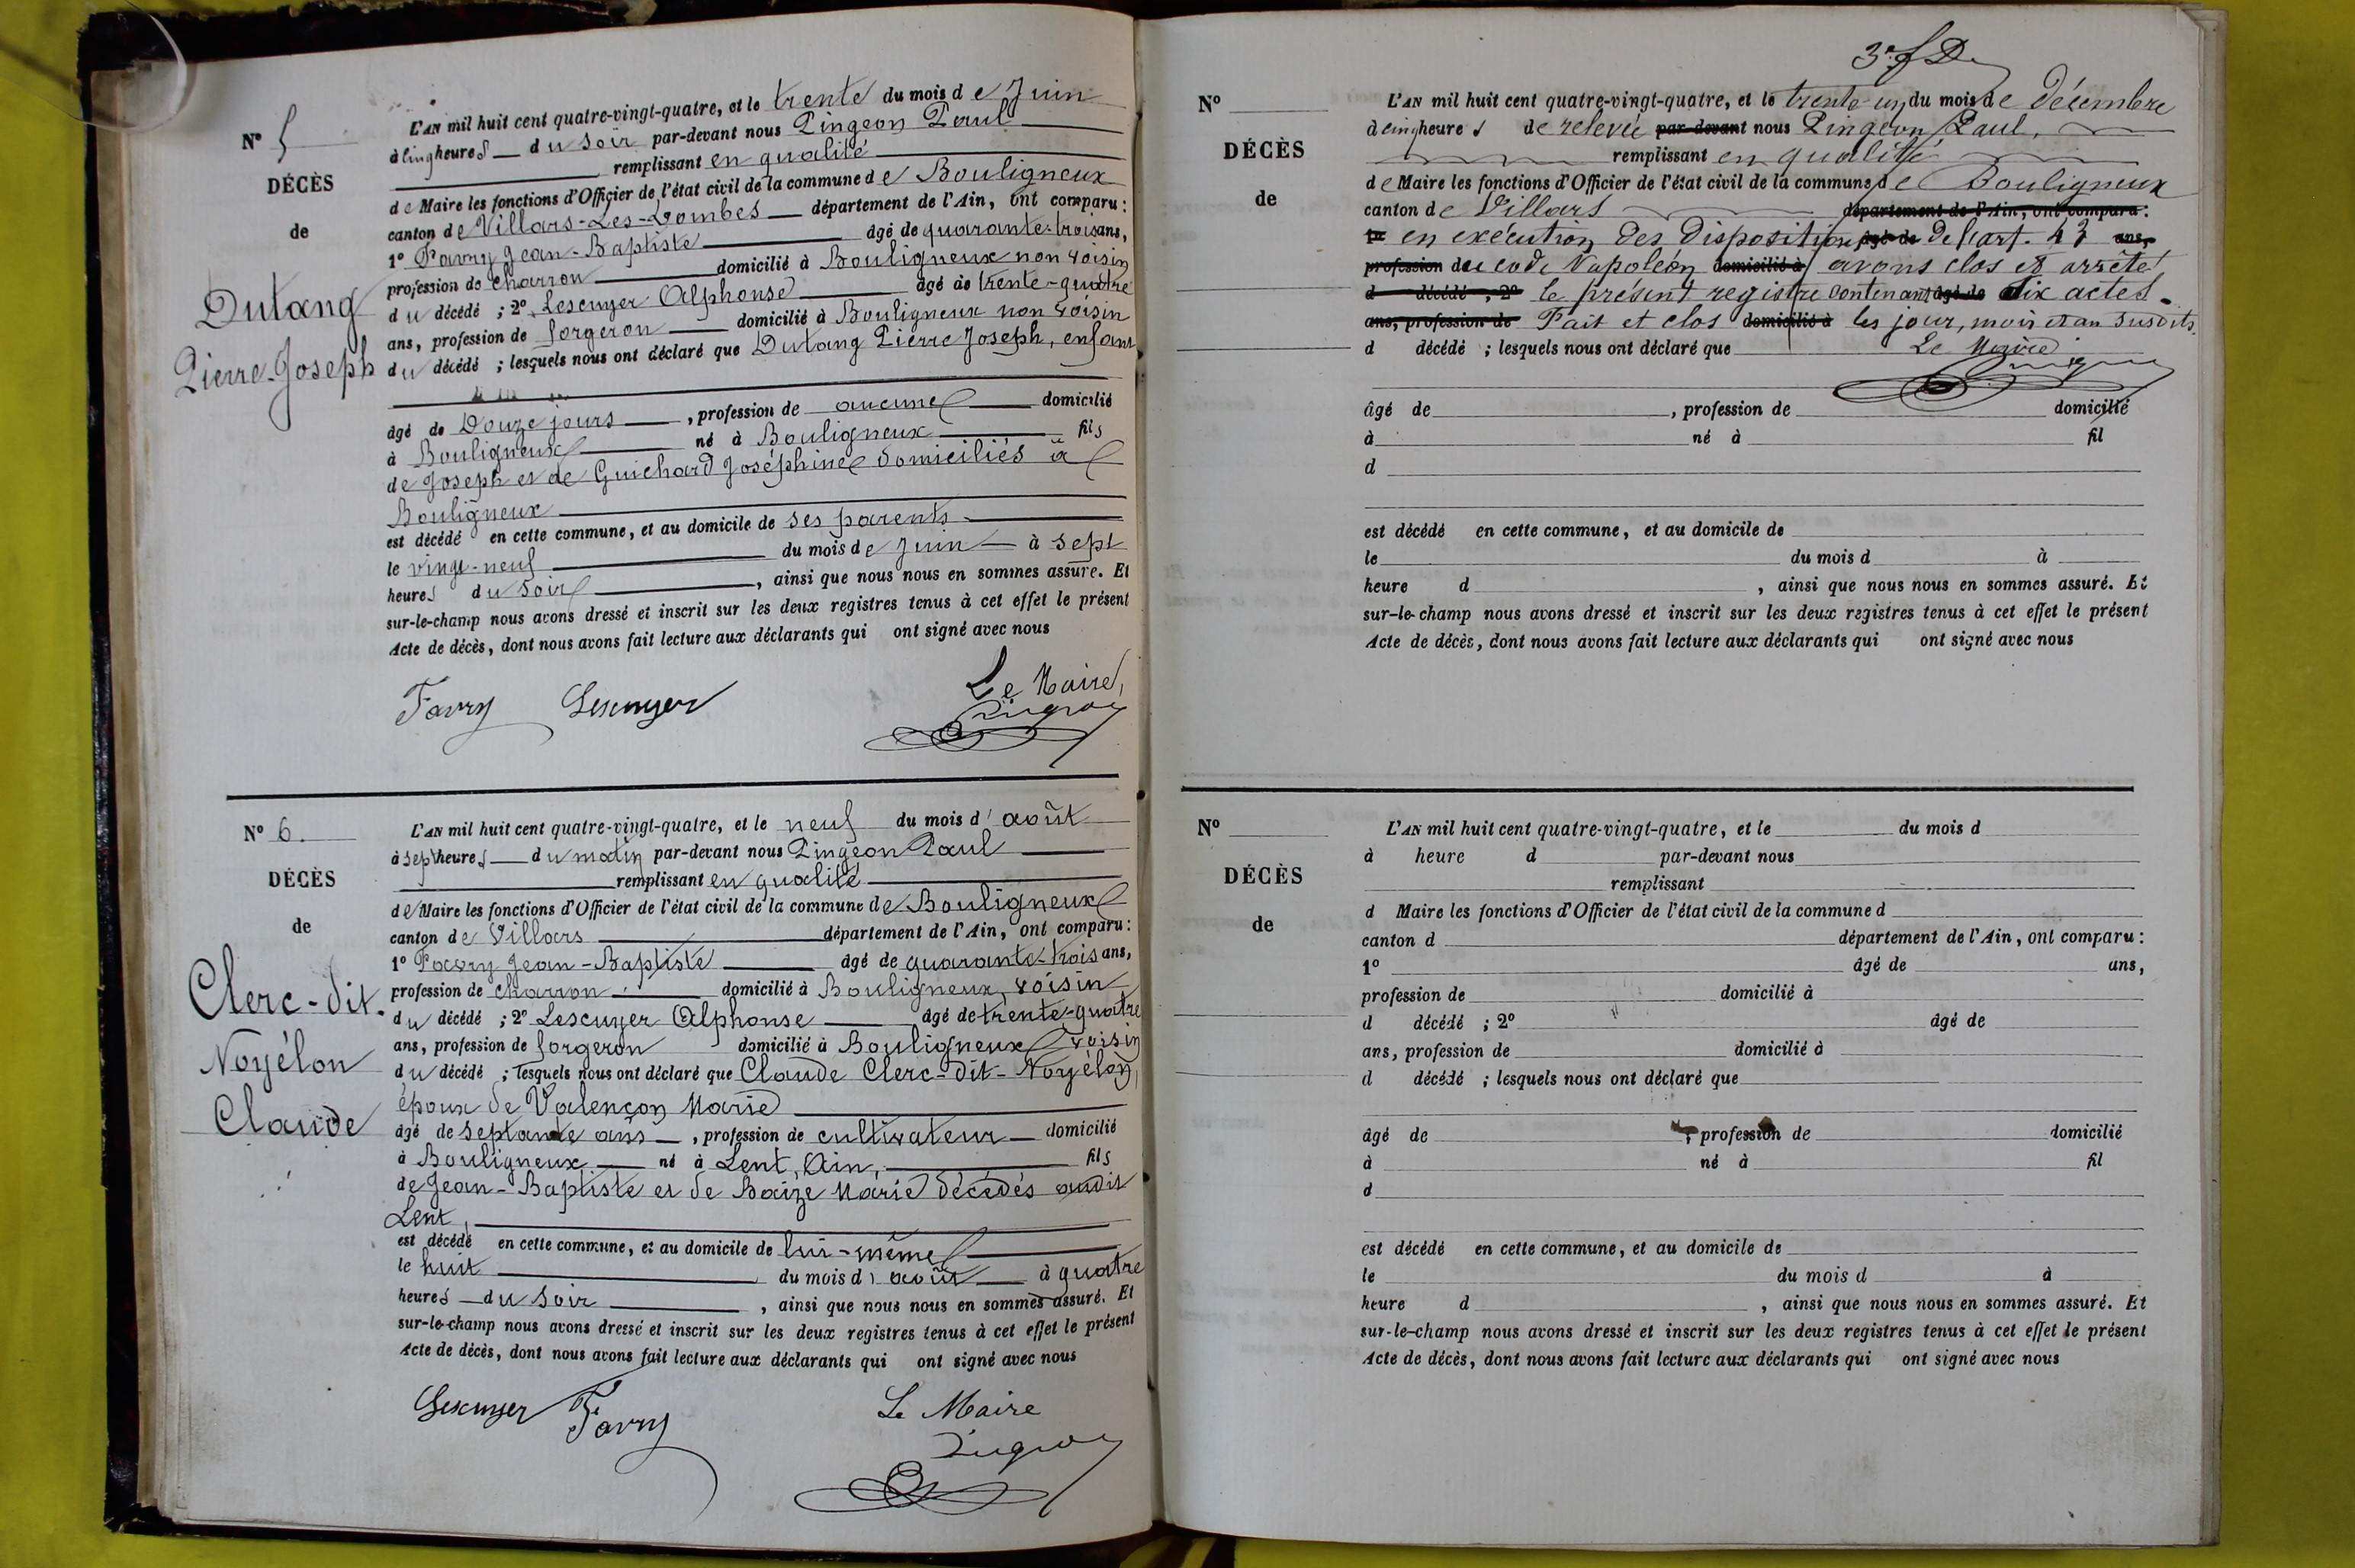 N° 5
DÉCÈS
de
Dutang
Pierre-Joseph
L'AN mil huit cent quatre-vingt-quatre, et le trente du mois de Juin
à cinq heures du soir par-devant nous Pingeon Paul
remplissant en qualité
de Maire les fonctions d'Officier de l'état civil de la commune de Bouligneux
canton de Villars-Les-Dombes département de l'Ain, ont comparu :
1° Favry Jean-Baptiste âgé de quarante-trois ans,
profession de charron domicilié à Bouligneux non voisin
du décédé ; 2° Lescuyer Alphonse âgé de trente-quatre
ans, profession de forgeron domicilié à Bouligneux non voisin
du décédé ; lesquels nous ont déclaré que Dutang Pierre Joseph, enfant
âgé de Douze jours , profession de aucune domicilié
à Bouligneux né à Bouligneux fils
de Joseph et de Guichard Joséphine domiciliés à
Bouligneux
est décédé en cette commune, et au domicile de ses parents
le vingt-neuf du mois de Juin à sept
heures du soir , ainsi que nous nous en sommes assuré. Et
sur-le-champ nous avons dressé et inscrit sur les deux registres tenus à cet effet le présent
Acte de décès, dont nous avons fait lecture aux déclarants qui ont signé avec nous
Favry Lescuyer Le Maire,
Pingeon
N° 6.
DÉCÈS
de
Clerc-dit-
Noyélon
Claude
L'AN mil huit cent quatre-vingt-quatre, et le neuf du mois d'août
à sept heures du matin par-devant nous Pingeon Paul
remplissant en qualité
de Maire les fonctions d'Officier de l'état civil de la commune de Bouligneux
canton de Villars département de l'Ain, ont comparu :
1° Favry Jean-Baptiste âgé de quarante-trois ans,
profession de charron domicilié à Bouligneux, voisin
du décédé ; 2° Lescuyer Alphonse âgé de trente-quatre
ans, profession de forgeron domicilié à Bouligneux voisin
du décédé ; lesquels nous ont déclaré que Claude Clerc-dit-Noyélon,
époux de Valençon Marie
âgé de septante ans , profession de cultivateur domicilié
à Bouligneux né à Lent, Ain, fils
de Jean-Baptiste et de Baize Marie décédés audit
Lent,
est décédé en cette commune, et au domicile de lui-même
le huit du mois d'août à quatre
heures du soir , ainsi que nous nous en sommes assuré. Et
sur-le-champ nous avons dressé et inscrit sur les deux registres tenus à cet effet le présent
Acte de décès, dont nous avons fait lecture aux déclarants qui ont signé avec nous
Lescuyer Favry Le Maire
Pingeon
3e f D
N°
DÉCÈS
de
L'AN mil huit cent quatre-vingt-quatre, et le trente-un du mois de décembre
à cinq heures de relevée par-devant nous Pingeon Paul,
remplissant en qualité
de Maire les fonctions d'Officier de l'état civil de la commune de Bouligneux
canton de Villars département de l'Ain, ont comparu :
1° en exécution des dispositions âgé de de l'art. 43 ans,
profession du code Napoléon domicilié à avons clos et arrêté
d décédé ; 2° le présent registre contenant âgé de dix actes.
ans, profession de Fait et clos domicilié à les jour, mois et an susdits.
d décédé ; lesquels nous ont déclaré que Le Maire
Pingeon
âgé de , profession de domicilié
à né à fil
d
est décédé en cette commune, et au domicile de
le du mois d à
heure d , ainsi que nous nous en sommes assuré. Et
sur-le-champ nous avons dressé et inscrit sur les deux registres tenus à cet effet le présent
Acte de décès, dont nous avons fait lecture aux déclarants qui ont signé avec nous
N°
DÉCÈS
de
L'AN mil huit cent quatre-vingt-quatre, et le du mois d
à heure d par-devant nous
remplissant
d Maire les fonctions d'Officier de l'état civil de la commune d
canton d département de l'Ain, ont comparu :
1° âgé de ans,
profession de domicilié à
d décédé ; 2° âgé de
ans, profession de domicilié à
d décédé ; lesquels nous ont déclaré que
âgé de , profession de domicilié
à né à fil
d
est décédé en cette commune, et au domicile de
le du mois d à
heure d , ainsi que nous nous en sommes assuré. Et
sur-le-champ nous avons dressé et inscrit sur les deux registres tenus à cet effet le présent
Acte de décès, dont nous avons fait lecture aux déclarants qui ont signé avec nous